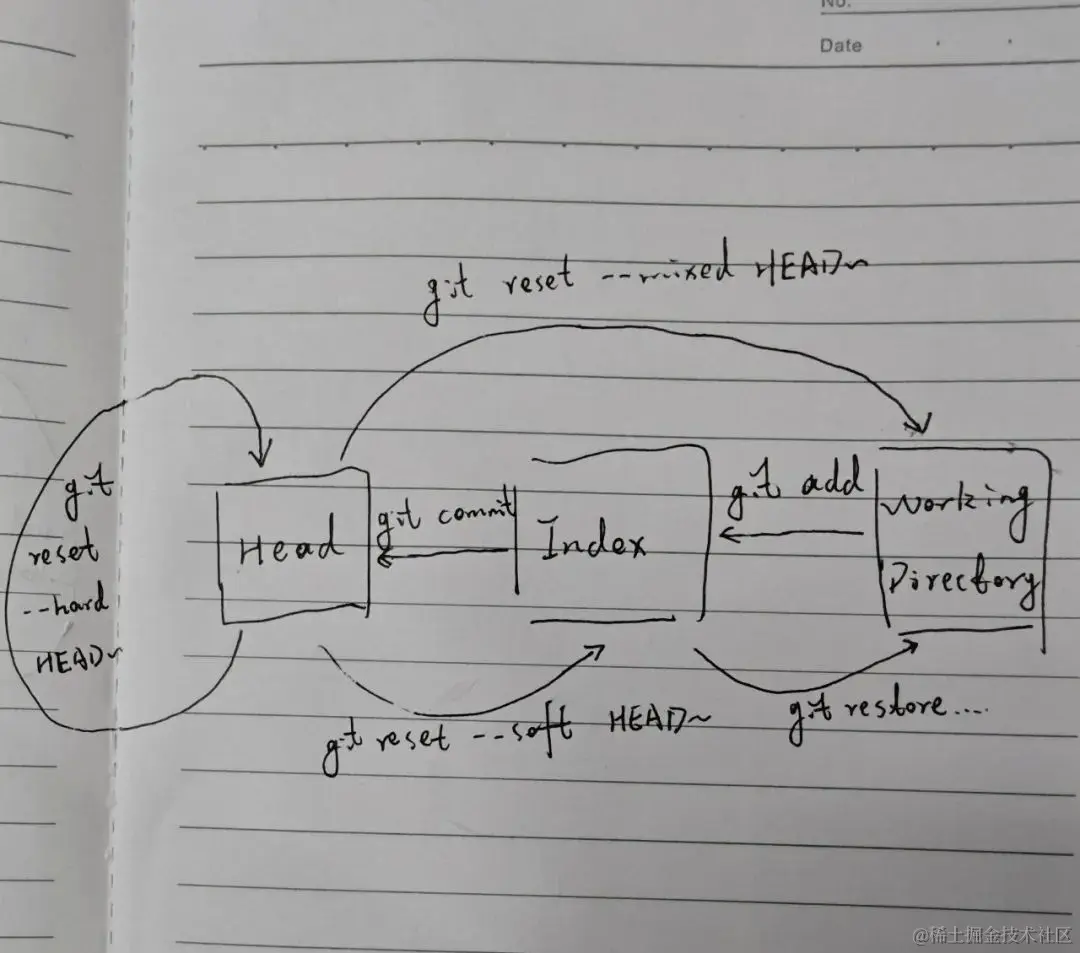 No.
Date
git reset --mixed HEAD~
git
reset
--hard
HEAD~
Head
git commit
Index
git add
Working
Directory
git reset --soft HEAD~
git restore....
@稀土掘金技术社区